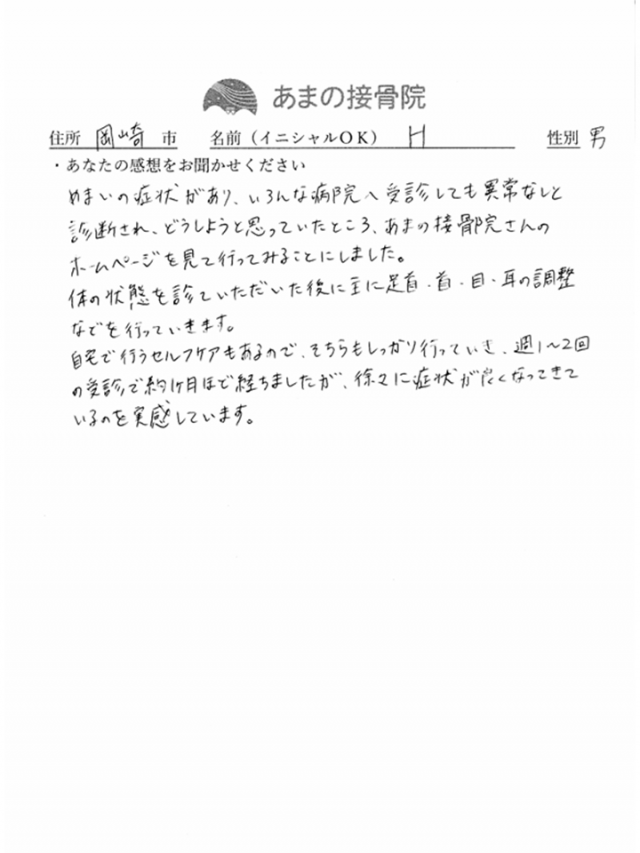 あまの接骨院
住所 岡崎 市 名前（イニシャルOK） H 性別 男
・あなたの感想をお聞かせください
めまいの症状があり、いろんな病院へ受診しても異常なしと
診断され、どうしようと思っていたところ、あまの接骨院さんの
ホームページを見て行ってみることにしました。
体の状態を診ていただいた後に主に足首・首・目・耳の調整
などを行っていきます。
自宅で行うセルフケアもあるので、そちらもしっかり行っていき、週1〜2回
の受診で約1ヶ月ほど経ちましたが、徐々に症状が良くなってきて
いるのを実感しています。